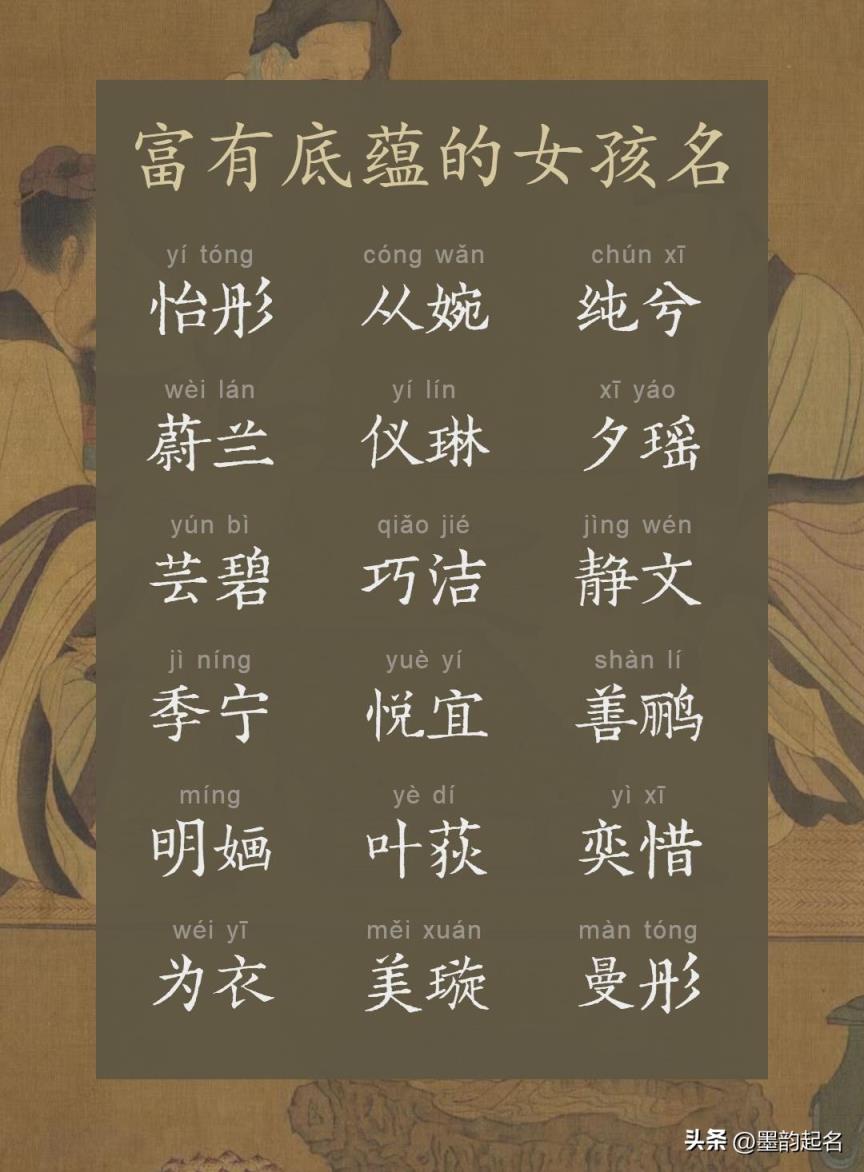 富有底蕴的女孩名
yí tóng cóng wǎn chún xī
怡彤 从婉 纯兮
wèi lán yí lín xī yáo
蔚兰 仪琳 夕瑶
yún bì qiǎo jié jìng wén
芸碧 巧洁 静文
jì níng yuè yí shàn lí
季宁 悦宜 善鹂
míng yè dí yì xī
明婳 叶荻 奕惜
wéi yī měi xuán màn tóng
为衣 美璇 曼彤
头条 @墨韵起名